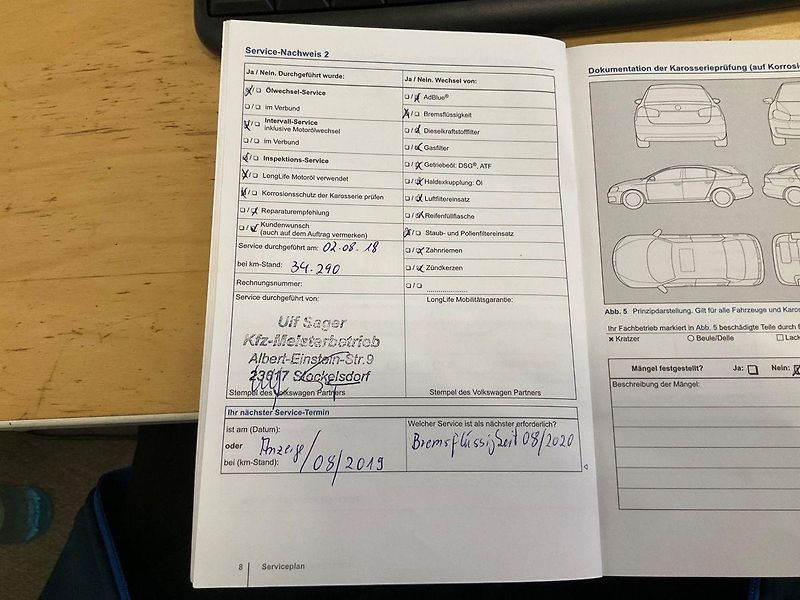 Service-Nachweis 2
Ja / Nein. Durchgeführt wurde:
Ölwechsel-Service
im Verbund
Intervall-Service
inklusive Motorölwechsel
im Verbund
Inspektions-Service
LongLife Motoröl verwendet
Korrosionsschutz der Karosserie prüfen
Reparaturempfehlung
Kundenwunsch
(auch auf dem Auftrag vermerken)
Service durchgeführt am: 02.08.18
bei km-Stand: 34.290
Rechnungsnummer:
Service durchgeführt von:
Ulf Sager
Kfz-Meisterbetrieb
Albert-Einstein-Str.9
23617 Stockelsdorf
Stempel des Volkswagen Partners
Ja / Nein. Wechsel von:
AdBlue®
Bremsflüssigkeit
Dieselkraftstofffilter
Gasfilter
Getriebeöl: DSG®, ATF
Haldexkupplung: Öl
Luftfiltereinsatz
Reifenfüllflasche
Staub- und Pollenfiltereinsatz
Zahnriemen
Zündkerzen
LongLife Mobilitätsgarantie:
Stempel des Volkswagen Partners
Ihr nächster Service-Termin
ist am (Datum):
oder Anzeige / 08/2019
bei (km-Stand):
Welcher Service ist als nächster erforderlich?
Bremsflüssigkeit 08/2020
8 Serviceplan
Dokumentation der Karosserieprüfung (auf Korrosi
Abb. 5 Prinzipdarstellung. Gilt für alle Fahrzeuge und Karos
Ihr Fachbetrieb markiert in Abb. 5 beschädigte Teile durch f
x Kratzer
Beule/Delle
Lack
Mängel festgestellt? Ja: Nein:
Beschreibung der Mängel: